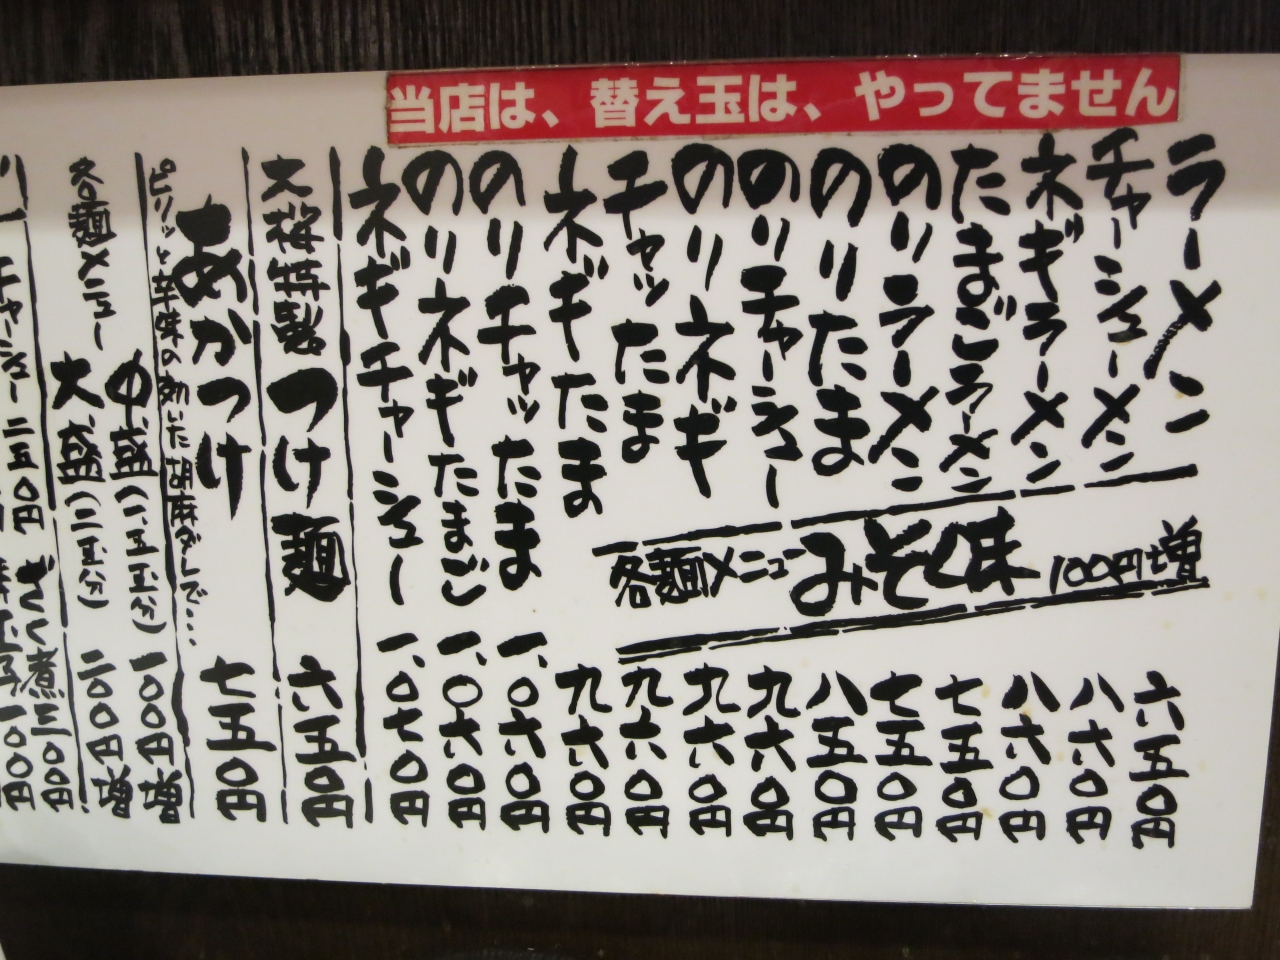 当店は、替え玉は、やってません
ラーメン 六五〇円
チャーシューメン 八六〇円
ネギラーメン 八六〇円
たまごラーメン 七五〇円
のりラーメン 七五〇円
のりたま 八五〇円
のりチャーシュー 九六〇円
のりネギ 九六〇円
チャッたま 九六〇円
ネギたま 九六〇円
のりチャッたま 一、〇六〇円
のりネギたまご 一、〇六〇円
ネギチャーシュー 一、〇七〇円
各麺メニューみそ味 100円増
大桜特製つけ麺 六五〇円
あかつけ 七五〇円
ピリッと辛味の効いた胡麻ダレで・・・・
各麺メニュー
中盛(一・五玉分) 一〇〇円増
大盛(二玉分) 二〇〇円増
チャーシュー 二五〇円
煮 三〇〇円
一〇〇円